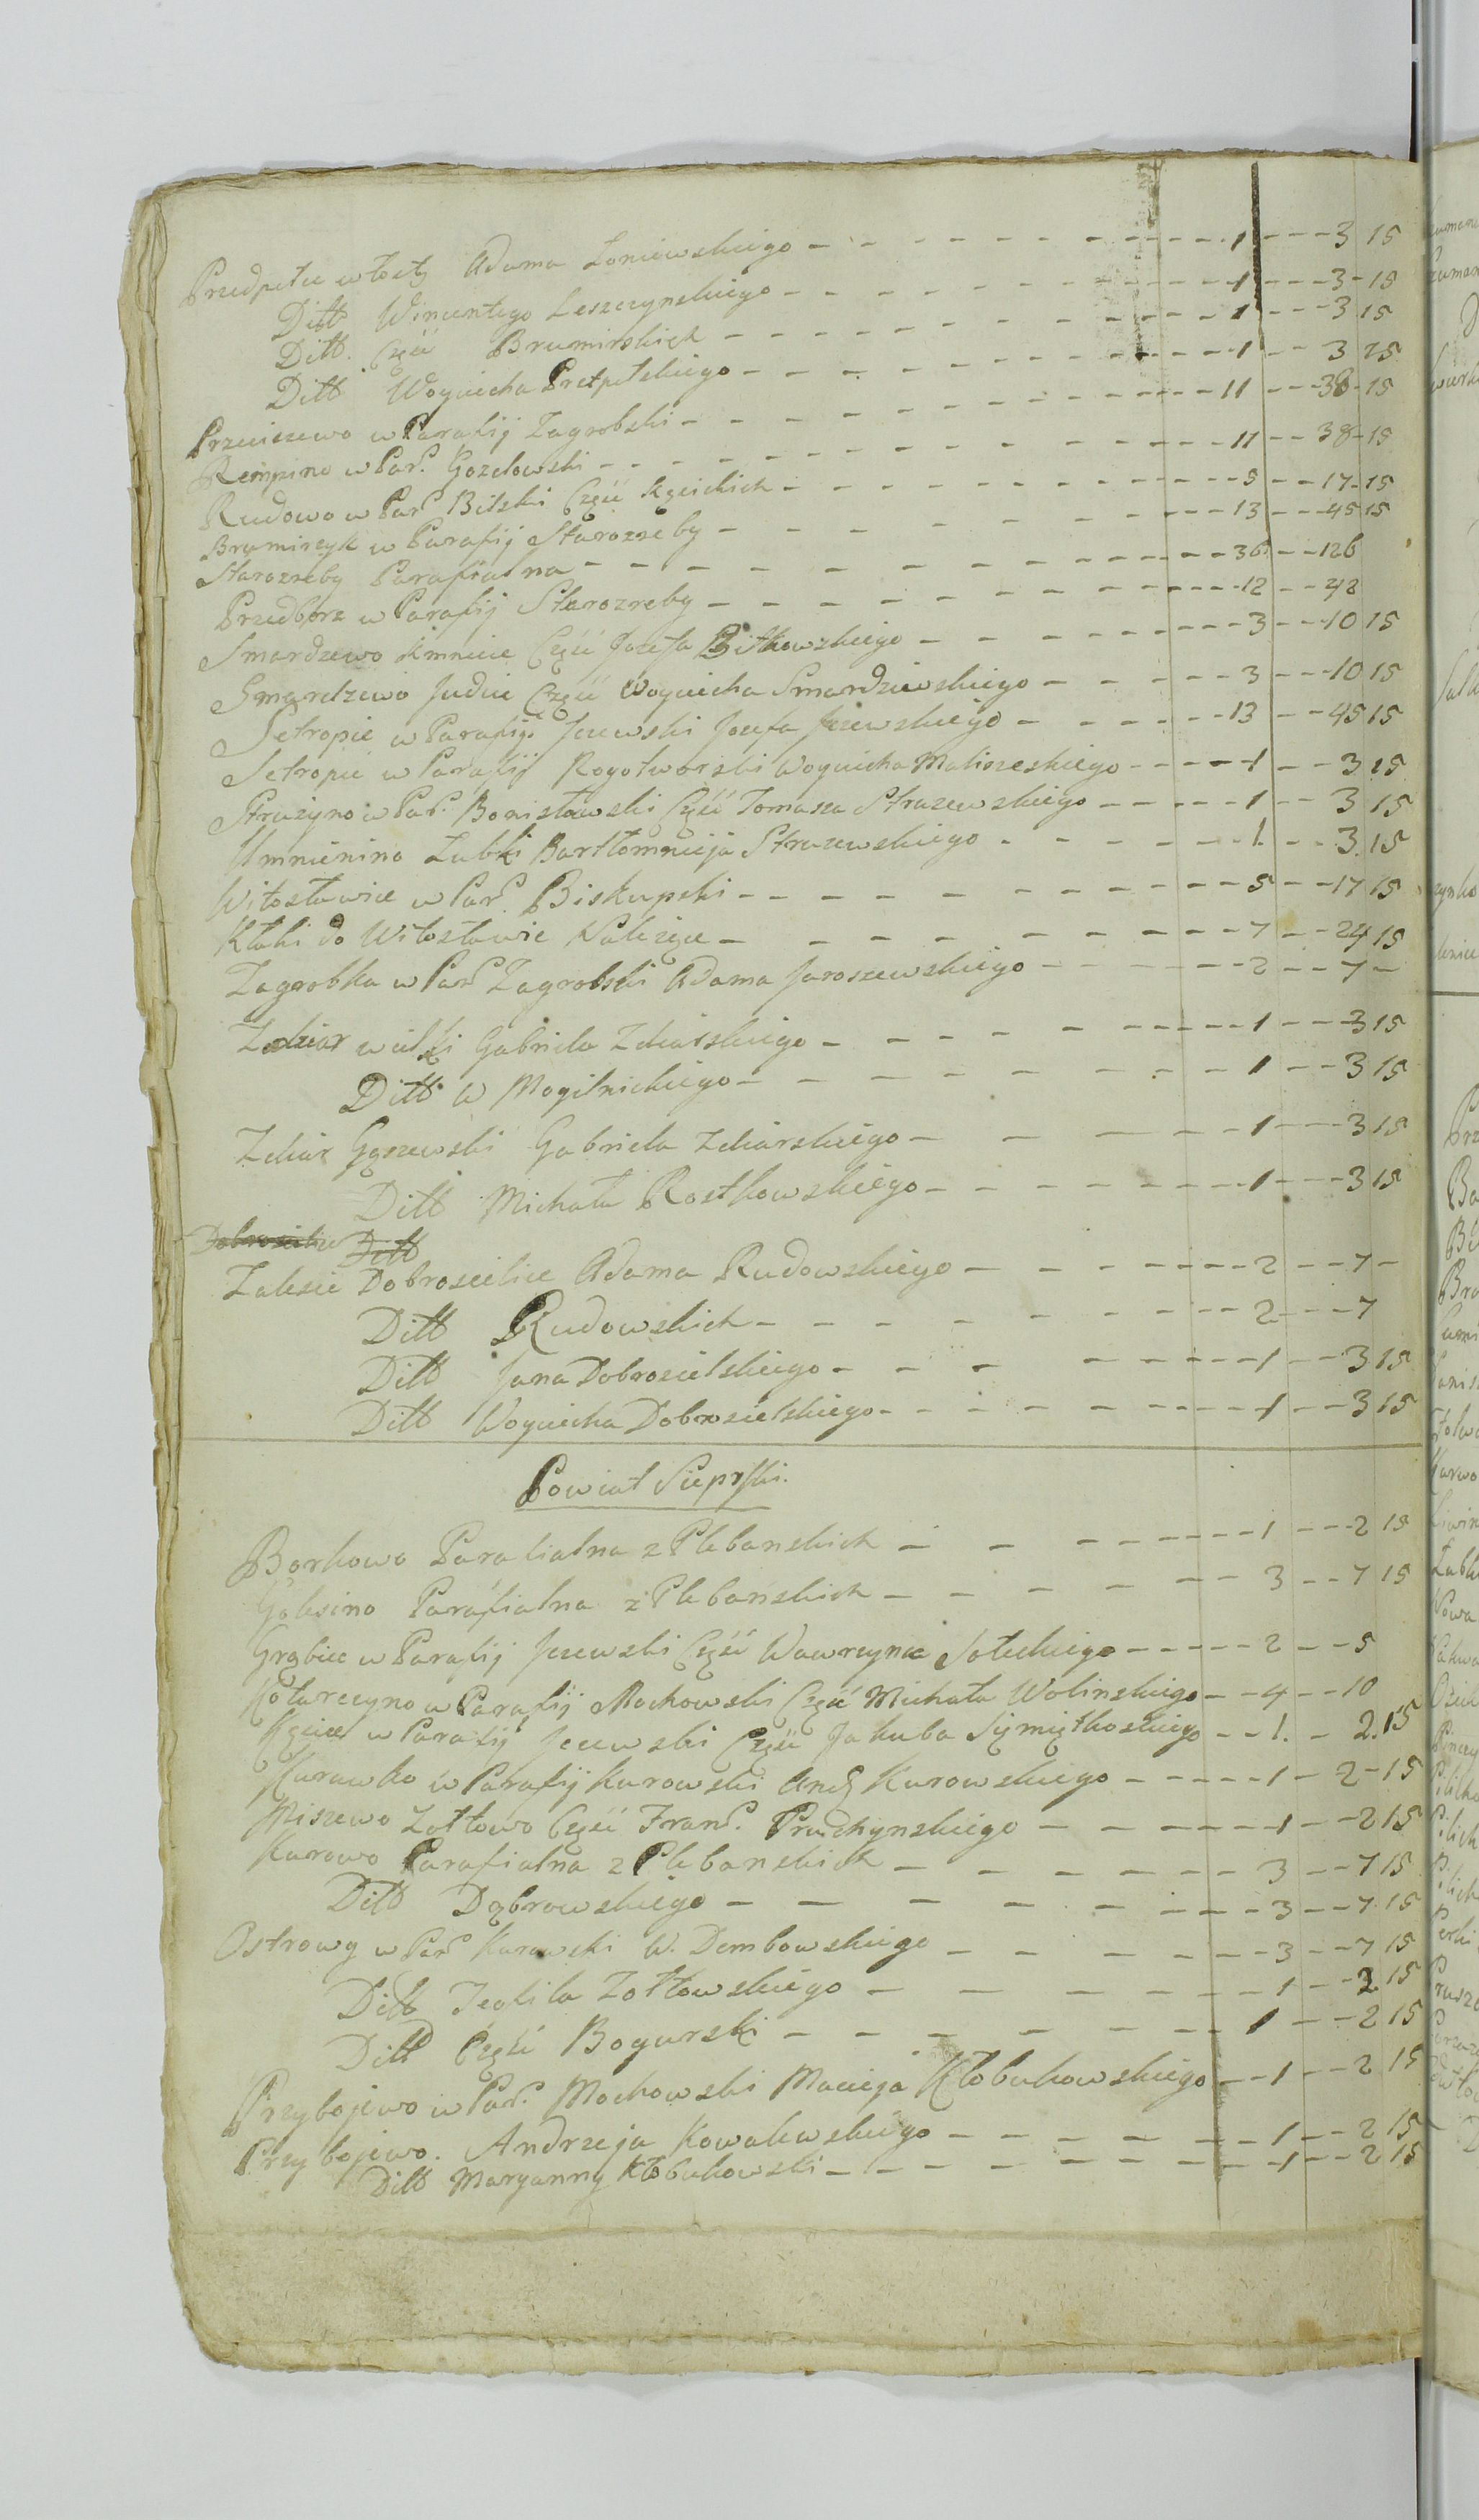 Przedpełce włosty Adama Łoniewskiego - - - 1 - - 3 15
Ditto Wincentego Leszczynskiego - - - 1 - - 3 - 15
Ditto. Część Brumirskich - - - 1 - - 3 15
Ditto Woyciecha Pretpełskiego - - - 1 - - 3 15
Przeciszewo w Parafij Zagrobski - - - 11 - - 38 - 15
Rempino w Par. Gozdowski - - - 11 - - 38 - 15
Rudowo w Par. Bilski Część Kęsickich - - - 5 - - 17 - 15
Brumirzyk w Parafij Starozreby - - - 13 - - 45 15
Starozreby Parafialna - - - 36 - - 126
Przedborz w Parafij Starozreby - - - 12 - - 42
Smardzewo Kmiecie Część Jozefa Bitkowskiego - - - 3 - - 10 15
Smardzewo Judici Część Woyciecha Smardzewskiego - - - 3 - - 10 15
Setropie w Parafiji Jezewski Jozefa Jezewskiego - - - 13 - - 45 15
Setropie w Parafij Rogotworski Woyciecha Maliszeskiego - - - 1 - - 3 15
Strużyno w Par. Bonisławski Część Tomasza Strazewskiego - - - 1 - - 3 15
Umnienino Lubki Bartłomnieja Struzewskiego - - - 1. - - 3. 15
Witosławice w Par. Biskupski - - - 5 - - 17 15
Kłaki do Witosławic Należące - - - 7 - - 24 15
Zagrobka w Par. Zagrobski Adama Jaroszewskiego - - - 2 - - 7 -
Zdziar wielki Gabriela Zdziarskiego - - - 1 - - 3 15
Ditto W Mogilnickiego - - - 1 - - 3 15
Zdziar Gąszewski Gabriela Zdziarskiego - - - 1 - - 3 15
Ditto Michała Rostkowskiego - - - 1 - - 3 15
Dobrosielice Ditto
Zalesie Dobrosielice Adama Rudowskiego - - - 2 - - 7 -
Ditto Rudowskich - - - 2 - - 7
Ditto Jana Dobrosielskiego - - - 1 - - 3 15
Ditto Woyciecha Dobrosielskiego - - - 1 - - 3 15
Powiat Sieprski.
Borkowo Parafialna z Plebanskich - - - 1 - - 2 15
Goleszino Parafialna z Plebanskich - - - 3 - - 7 15
Grąbiec w Parafij Jezewski Część Wawrzynca Soleckiego - - - 2 - - 5
Kotarczyno w Parafij Mochowski Część Michała Wolinskiego - - 4 - - 10
Kęsice w Parafij Jezewski Część Jakuba Symiątkoskiego - - 1. - 2. 15
Kurawko w Parafij Kurowski And. Kurowskiego - - - 1 - 2 - 15
Miszewo Zołtowo Część Fran. Pruchynskiego - - - 1 - - 2 15
Kurowo Parafialna z Plebanskich - - - 3 - - 7 15
Ditto Dąbrowskiego - - - 3 - - 7 15
Ostrowy w Par. Kurowski W. Dembowskiego - - - 3 - - 7 15
Ditto Teofila Zołtowskiego - - - 1 - - 2 15
Ditto Część Bogurski - - - 1 - - 2 15
Przybojewo w Par. Mochowski Macieja Kłobukowskiego - - 1 - - 2 15
Przybojewo. Andrzeja Kowalewskiego - - - 1 - - 2 15
Ditto Maryanny Kłobukowski - - - 1 - - 2 15